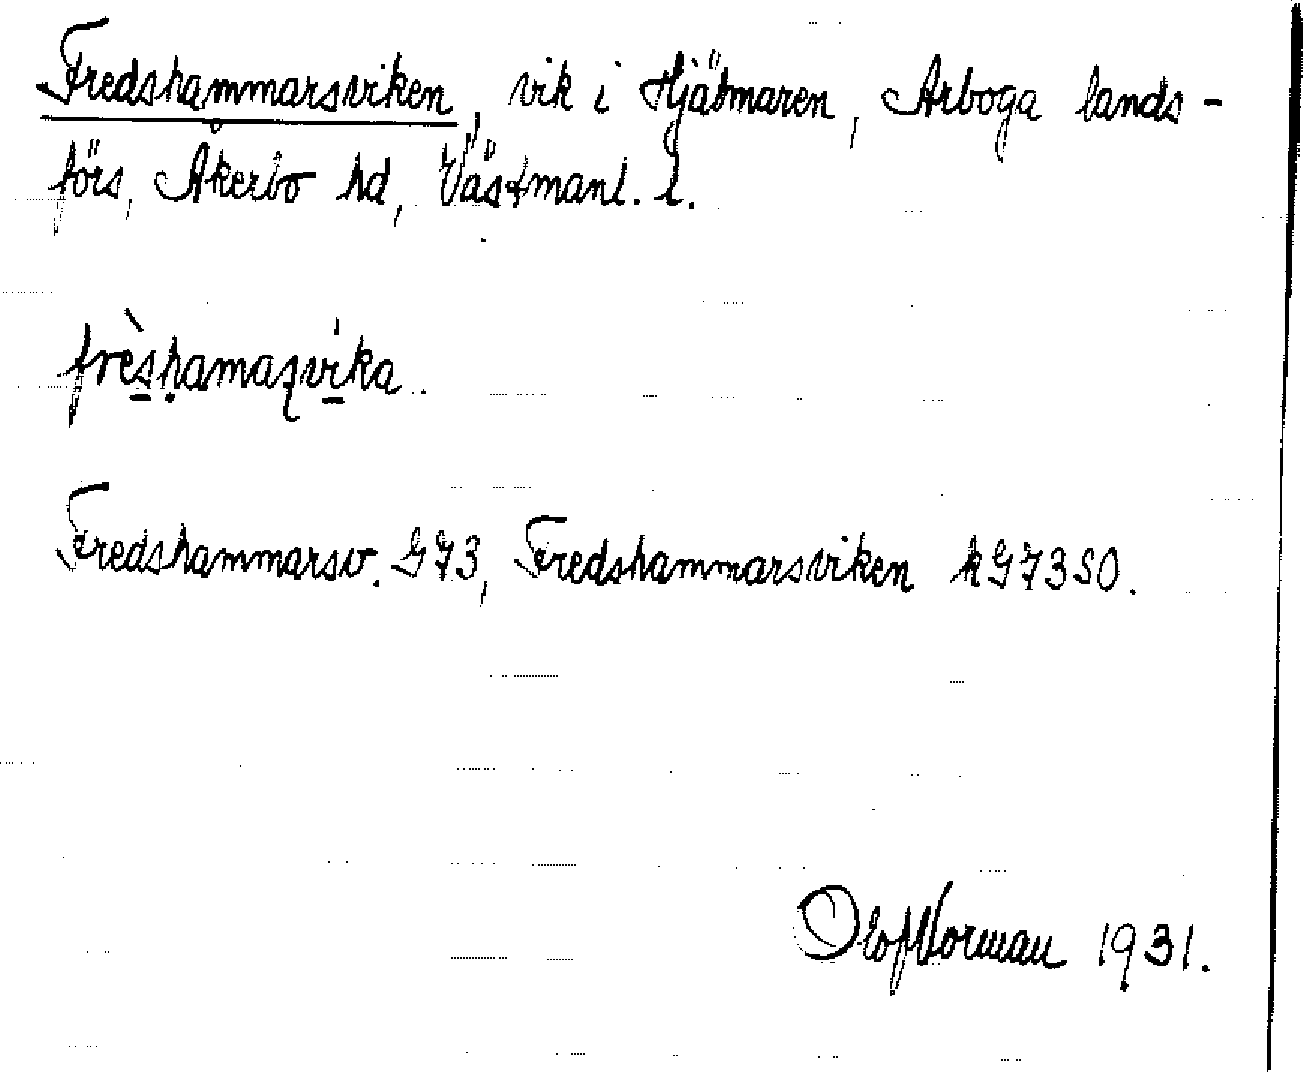 Fredshammarsviken, vik i Hjälmaren, Arboga lands-
förs, Åkerbo hd, Västmanl. l.
frèshamaʂvika.
Fredshammarsv. G73, Fredshammarsviken kG73SO.
Olof Norman 1931.